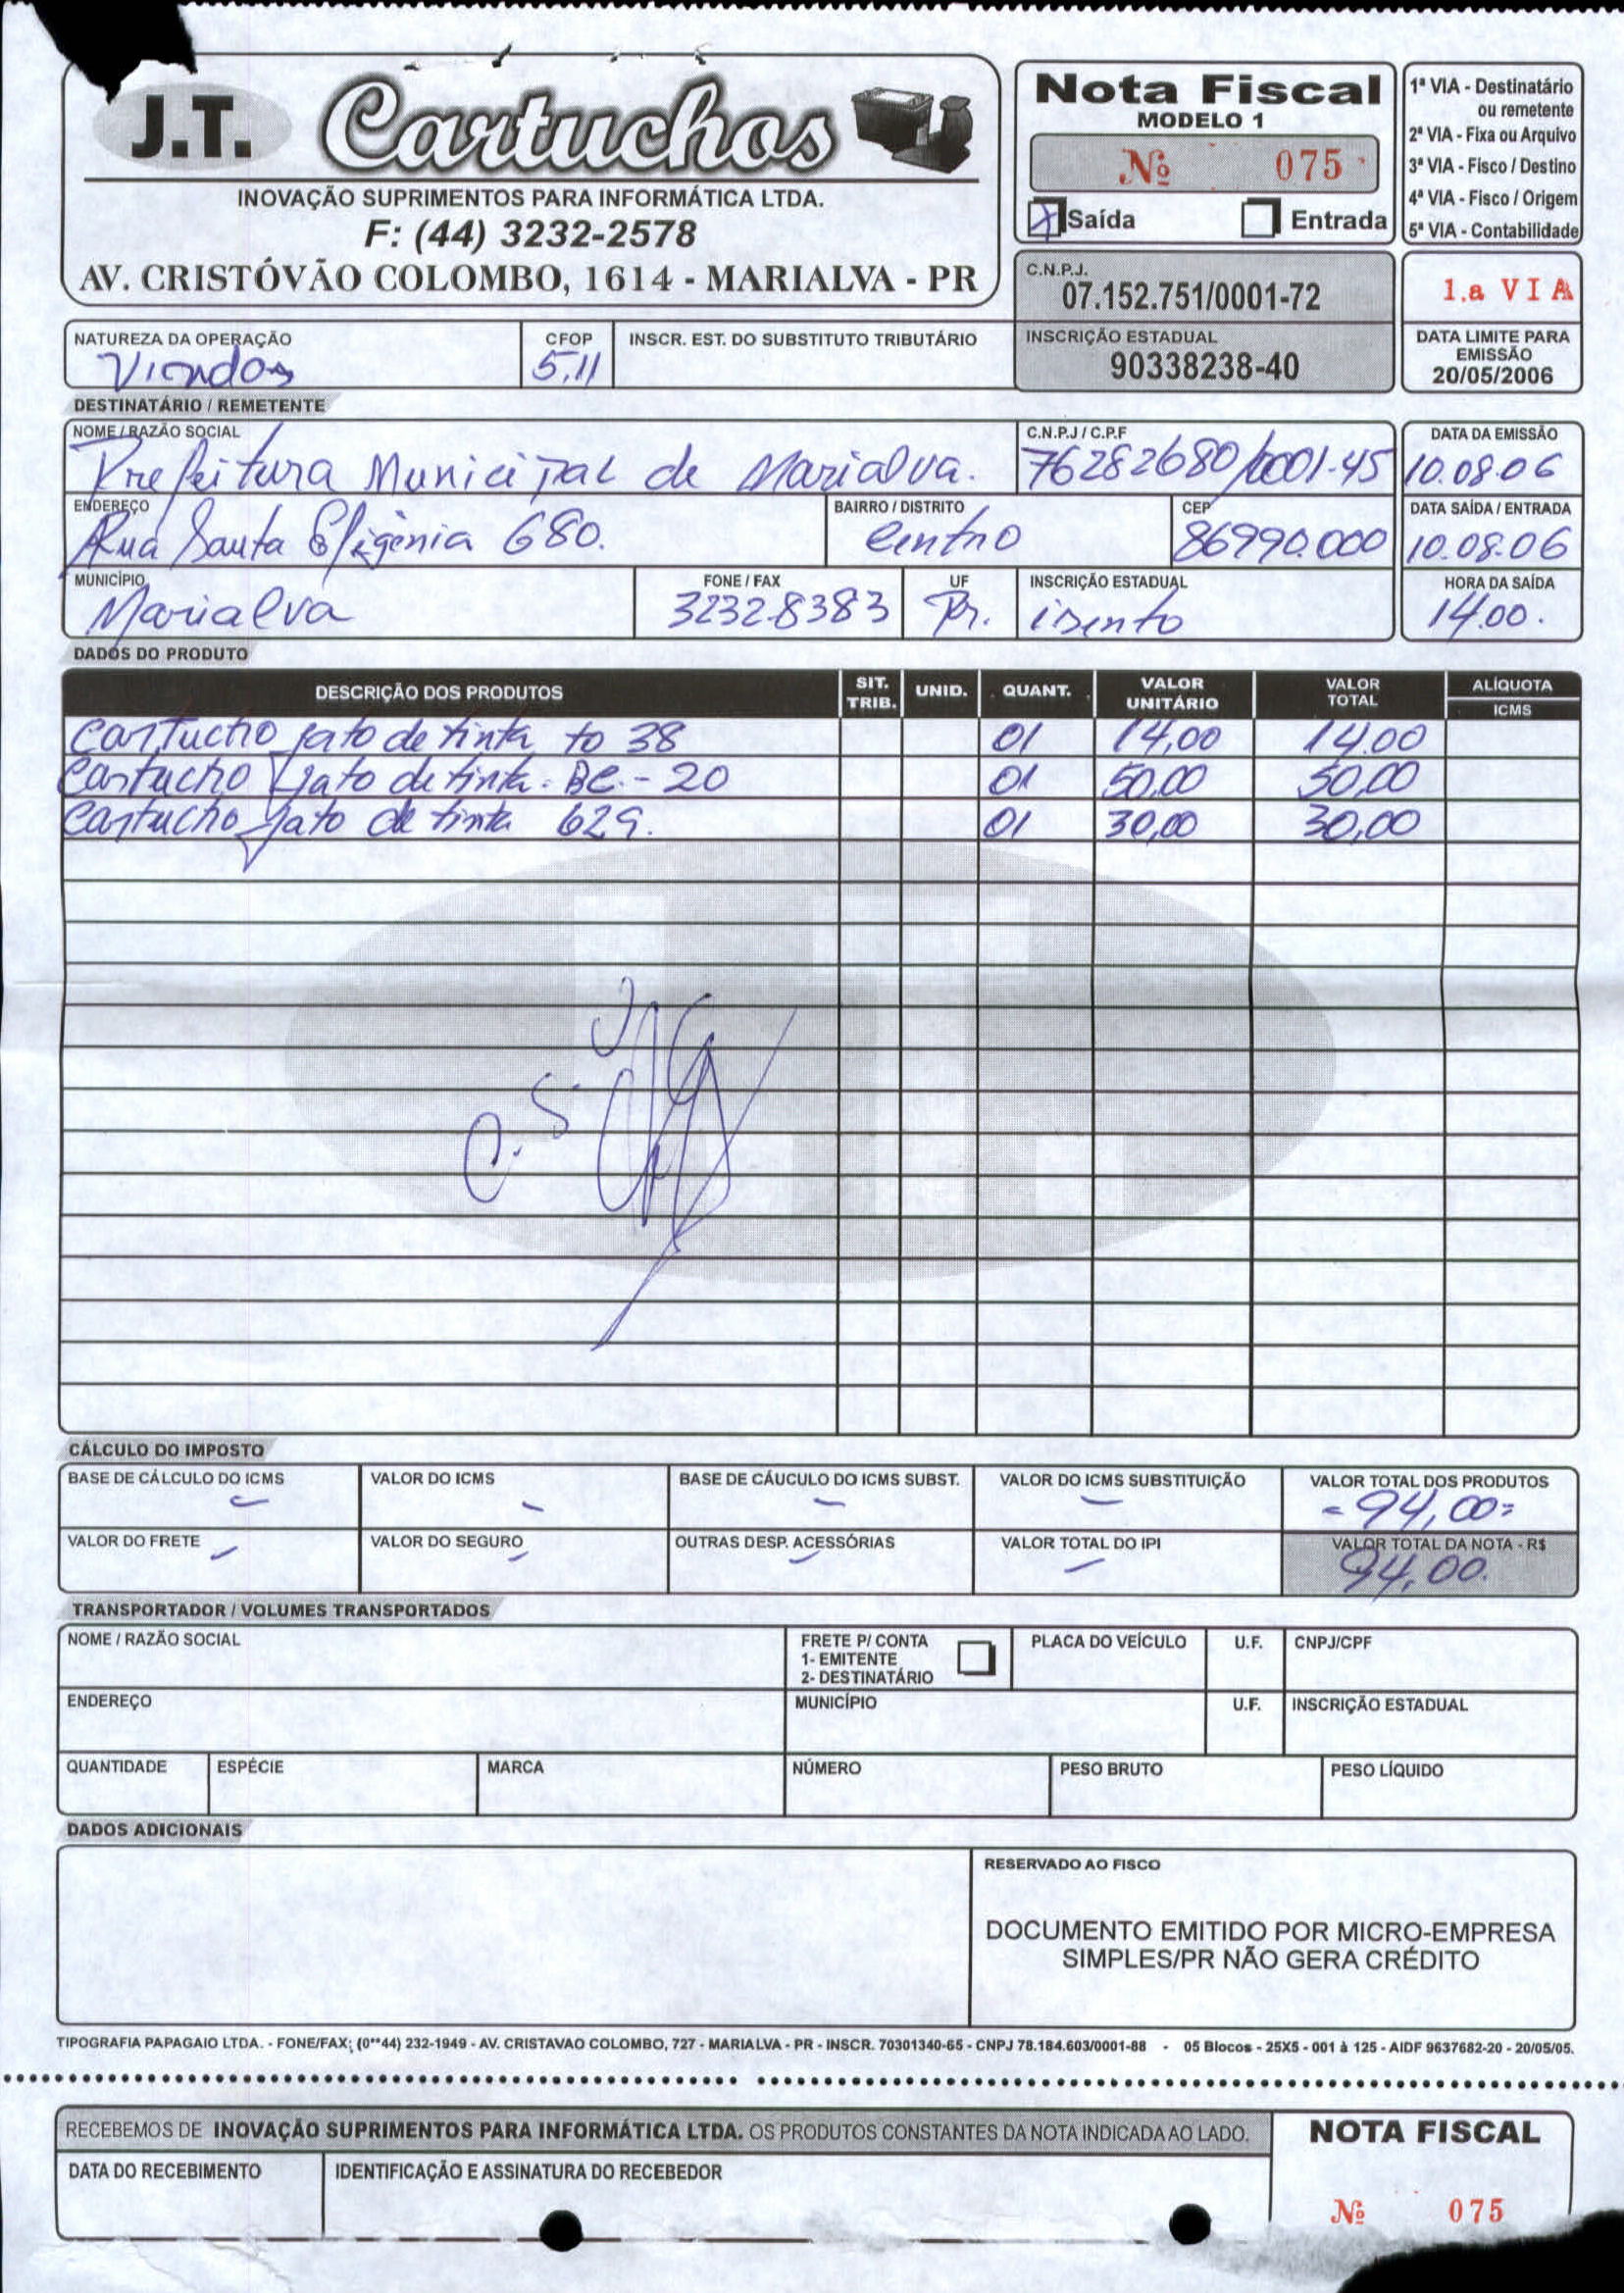 J.T. Cartuchos
INOVAÇÃO SUPRIMENTOS PARA INFORMÁTICA LTDA.
F: (44) 3232-2578
AV. CRISTÓVÃO COLOMBO, 1614 - MARIALVA - PR
Nota Fiscal
MODELO 1
Nº 075
X Saída Entrada
1ª VIA - Destinatário
ou remetente
2ª VIA - Fixa ou Arquivo
3ª VIA - Fisco / Destino
4ª VIA - Fisco / Origem
5ª VIA - Contabilidade
C.N.P.J.
07.152.751/0001-72
1.a VIA
NATUREZA DA OPERAÇÃO CFOP INSCR. EST. DO SUBSTITUTO TRIBUTÁRIO INSCRIÇÃO ESTADUAL
5.11 90338238-40
DATA LIMITE PARA
EMISSÃO
20/05/2006
DESTINATÁRIO / REMETENTE
NOME / RAZÃO SOCIAL C.N.P.J / C.P.F DATA DA EMISSÃO
Prefeitura Municipal de Marialva. 76282680/0001-45 10.08.06
ENDEREÇO BAIRRO / DISTRITO CEP DATA SAÍDA / ENTRADA
Rua Santa Efigênia 680. Centro 86990.000 10.08.06
MUNICÍPIO FONE / FAX UF INSCRIÇÃO ESTADUAL HORA DA SAÍDA
Marialva 3232.8383 Pr. isento 14.00.
DADOS DO PRODUTO
DESCRIÇÃO DOS PRODUTOS SIT. TRIB. UNID. QUANT. VALOR UNITÁRIO VALOR TOTAL ALÍQUOTA ICMS
Cartucho jato de tinta to 38 01 14,00 14.00
Cartucho jato de tinta. BC.-20 01 50,00 50,00
Cartucho jato de tinta 629. 01 30,00 30,00
CÁLCULO DO IMPOSTO
BASE DE CÁLCULO DO ICMS VALOR DO ICMS BASE DE CÁUCULO DO ICMS SUBST. VALOR DO ICMS SUBSTITUIÇÃO VALOR TOTAL DOS PRODUTOS
- - - - = 94,00=
VALOR DO FRETE VALOR DO SEGURO OUTRAS DESP. ACESSÓRIAS VALOR TOTAL DO IPI VALOR TOTAL DA NOTA - R$
- - - - 94,00.
TRANSPORTADOR / VOLUMES TRANSPORTADOS
NOME / RAZÃO SOCIAL FRETE P/ CONTA PLACA DO VEÍCULO U.F. CNPJ/CPF
1- EMITENTE
2- DESTINATÁRIO
ENDEREÇO MUNICÍPIO U.F. INSCRIÇÃO ESTADUAL
QUANTIDADE ESPÉCIE MARCA NÚMERO PESO BRUTO PESO LÍQUIDO
DADOS ADICIONAIS
RESERVADO AO FISCO
DOCUMENTO EMITIDO POR MICRO-EMPRESA
SIMPLES/PR NÃO GERA CRÉDITO
TIPOGRAFIA PAPAGAIO LTDA. - FONE/FAX; (0**44) 232-1949 - AV. CRISTAVAO COLOMBO, 727 - MARIALVA - PR - INSCR. 70301340-65 - CNPJ 78.184.603/0001-88 - 05 Blocos - 25X5 - 001 à 125 - AIDF 9637682-20 - 20/05/05.
RECEBEMOS DE INOVAÇÃO SUPRIMENTOS PARA INFORMÁTICA LTDA. OS PRODUTOS CONSTANTES DA NOTA INDICADA AO LADO.
NOTA FISCAL
DATA DO RECEBIMENTO IDENTIFICAÇÃO E ASSINATURA DO RECEBEDOR
Nº 075